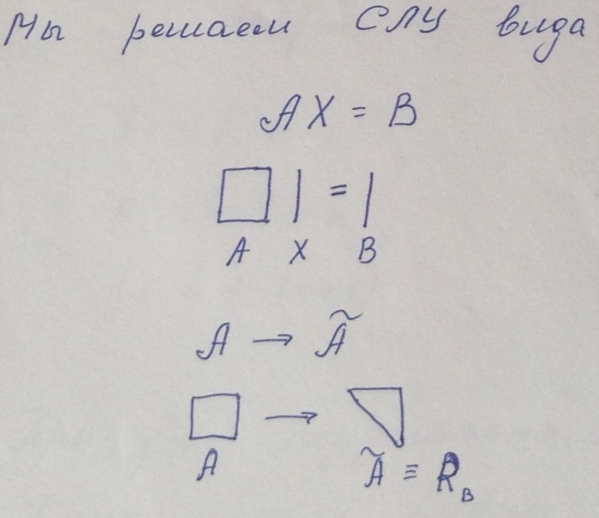 Мы решаем СЛУ вида
AX = B
=
A X B
A → Ã
→
A Ã ≡ R_B